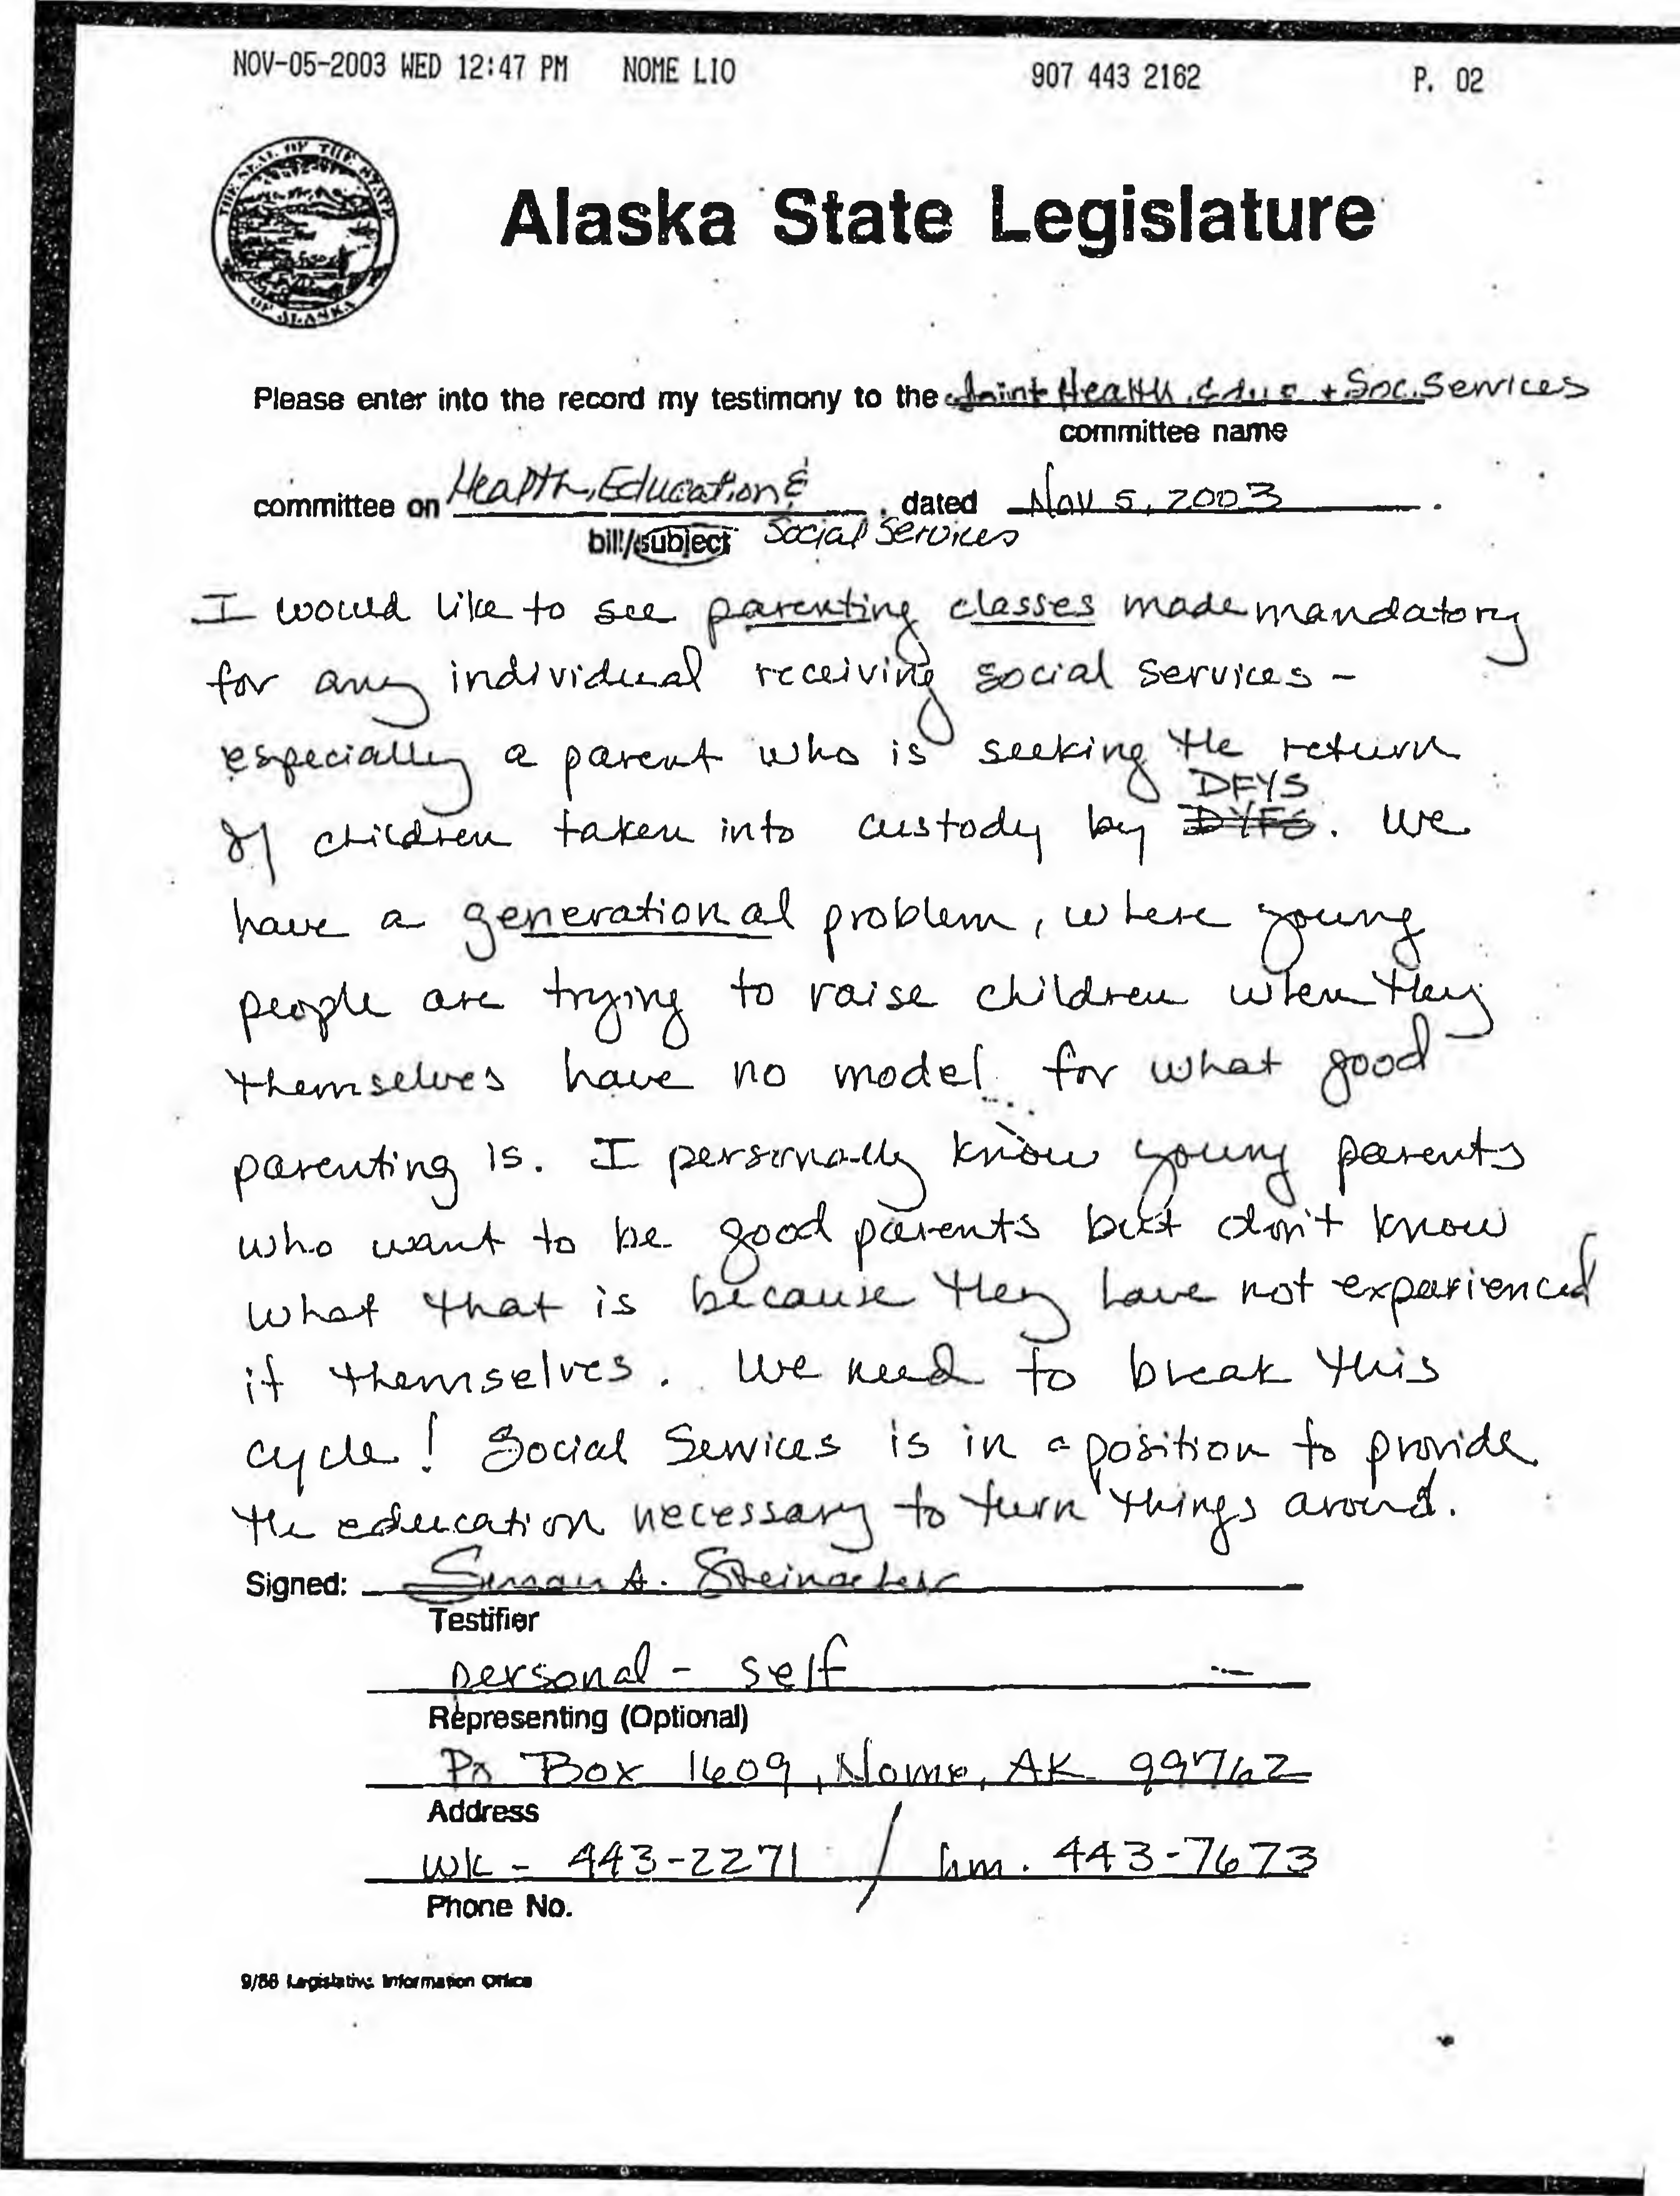 NOV-05-2003 WED 12:47 PM NOME LIO 907 443 2162 P. 02
THE SEAL OF THE STATE OF ALASKA
Alaska State Legislature
Please enter into the record my testimony to the Joint Health, Educ + Soc. Services
committee name
committee on Health, Education & , dated Nov 5, 2003 .
bill/subject Social Services
I would like to see parenting classes made mandatory
for any individual receiving social services -
especially a parent who is seeking the return
DFYS
of children taken into custody by DYFS. We
have a generational problem, where young
people are trying to raise children when they
themselves have no model for what good
parenting is. I personally know young parents
who want to be good parents but don't know
what that is because they have not experienced
it themselves. We need to break this
cycle! Social Services is in a position to provide
the education necessary to turn things around.
Signed: Susan A. Steinacher
Testifier
personal - self
Representing (Optional)
Po Box 1609, Nome, AK 99762
Address
wk - 443-2271 / hm. 443-7673
Phone No.
9/88 Legislative Information Office